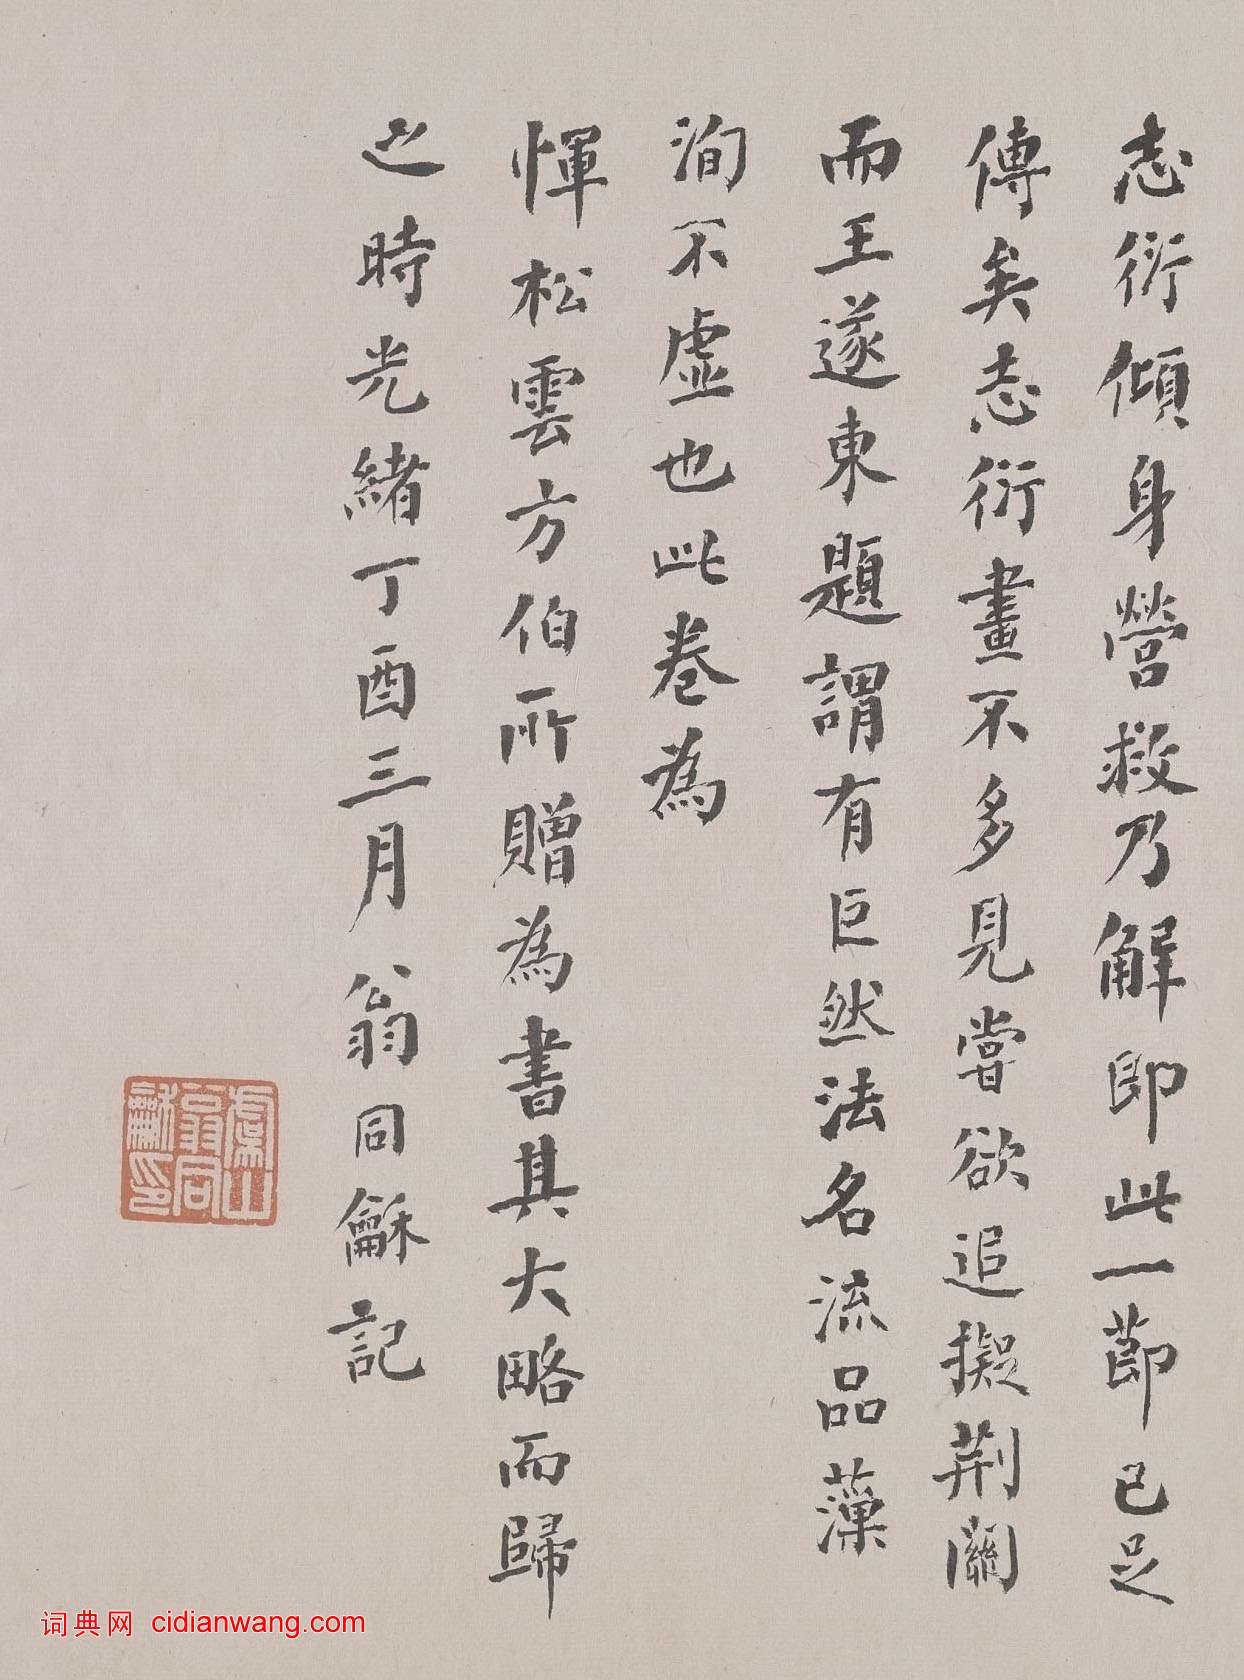 志衍傾身營救乃解即此一節已足
傳矣志衍畫不多見嘗欲追擬荆關
而王遂東題謂有巨然法名流品藻
洵不虛也此卷為
惲松雲方伯所贈為書其大略而歸
之時光緒丁酉三月翁同龢記
虞山
翁同
龢印
词典网 cidianwang.com